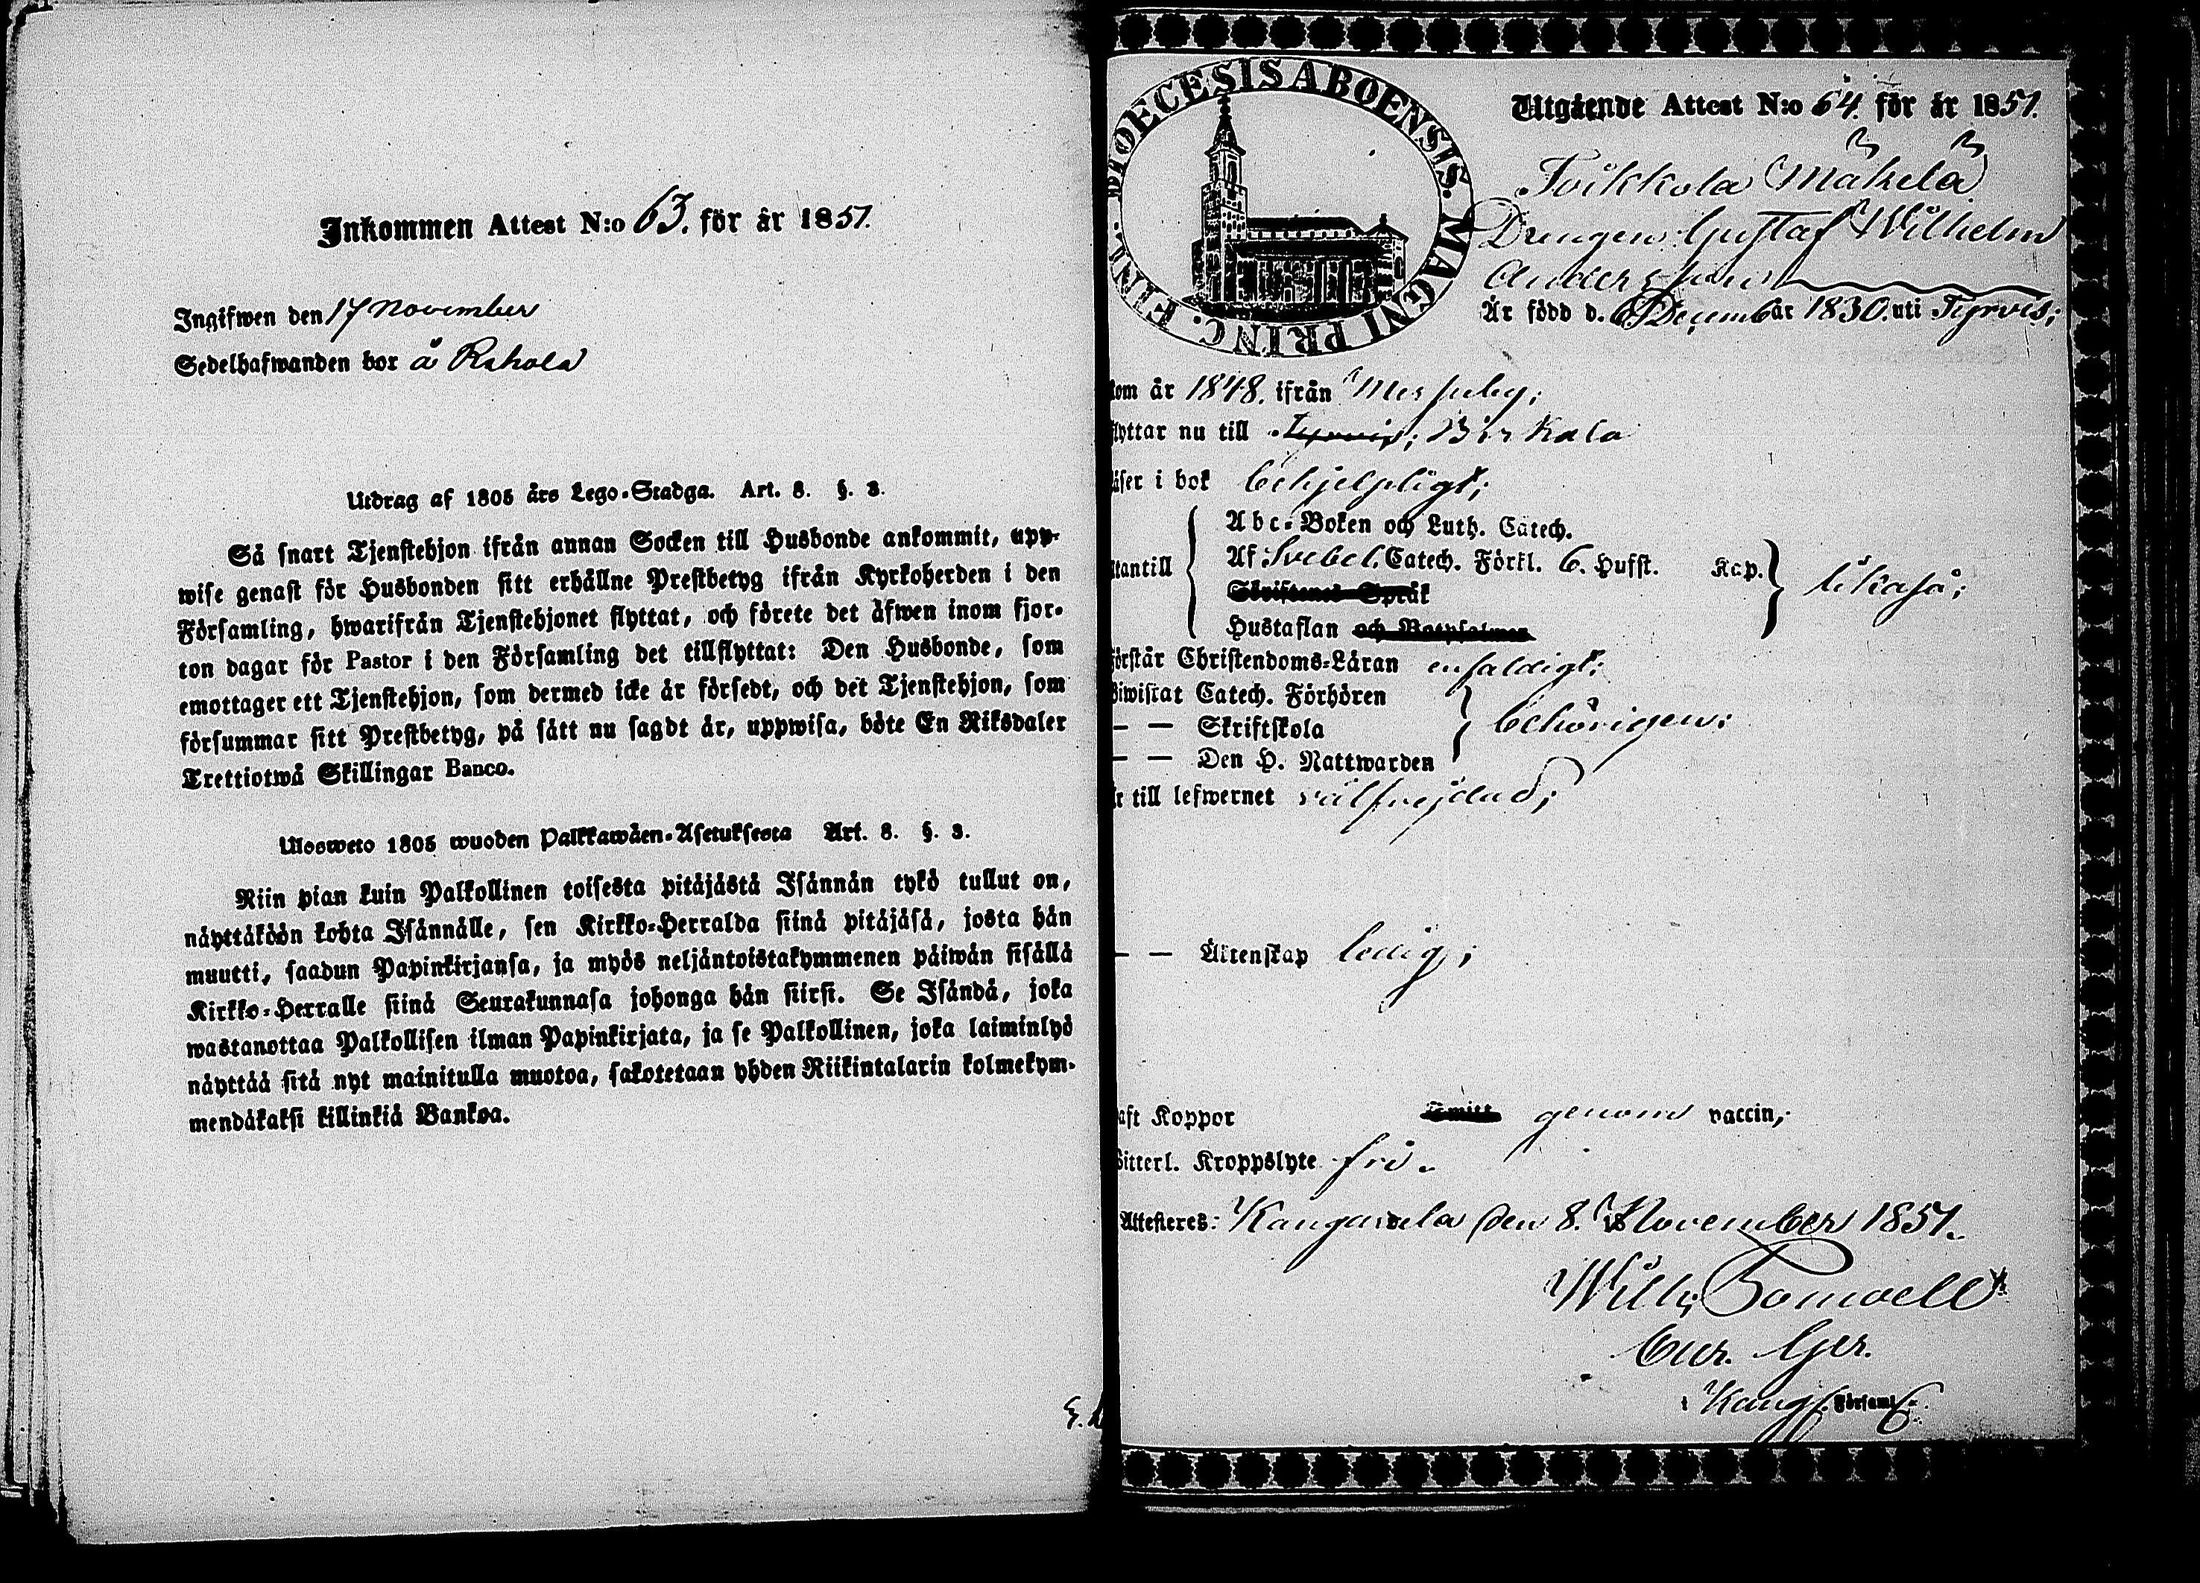 Inkommen Attest N:o 63. för år 1851.
Ingifwen den 17 November
Sedelhafwanden bor å Rahola
Utdrag af 1805 års Lego-Stadga. Art. 8. §. 3.
Så snart Tjenstehjon ifrån annan Socken till Husbonde ankommit, upp-
wise genast för Husbonden sitt erhållne Prestbetyg ifrån Kyrkoherden i den
Församling, hwarifrån Tjenstehjonet flyttat, och förete det äfwen inom fjor-
ton dagar för Pastor i den Församling det tillflyttat: Den Husbonde, som
emottager ett Tjenstehjon, som dermed icke är försedt, och det Tjenstehjon, som
försummar sitt Prestbetyg, på sätt nu sagdt är, uppwisa, böte En Riksdaler
Trettiotwå Skillingar Banco.
Ulosweto 1805 wuoden Palkkawäen-Asetuksesta Art. 8. §. 3.
Niin pian kuin Palkollinen toisesta pitäjästä Isännän tykö tullut on,
näyttäköön kohta Isännälle, sen Kirkko-Herralda siinä pitäjäsä, josta hän
muutti, saadun Papinkirjansa, ja myös neljäntoistakymmenen päiwän sisällä
Kirkko-Herralle siinä Seurakunnasa johonga hän siirsi. Se Isändä, joka
wastanottaa Palkollisen ilman Papinkirjata, ja se Palkollinen, joka laiminlyö
näyttää sitä nyt mainitulla muotoa, sakotetaan yhden Riikintalarin kolmekym-
mendäkaksi killinkiä Bankoa.
DIOECESIS ABOENSIS. MAGNI PRINC. FINL.
Utgående Attest N:o 64. för år 1851.
Toikkola Mäkelä
Drengen Gustaf Wilhelm
Andersson
Är född d. 6 Decemb är 1830. uti Tyrvis;
kom år 1848. ifrån Messuby;
flyttar nu till Tyrvis; Birkala
läser i bok behjelpligt;
Abc-Boken och Luth. Catech.
utantill Af Svebel. Catech. Förkl. 6. Hufst. Kap. likaså;
Skriftenes Språk
Hustaflan och Botpsalmer
förstår Christendoms-Läran enfaldigt;
biwistat Catech. Förhören
— — Skriftskola behörigen;
— — Den H. Nattwarden
är till lefwernet välfrejdad;
— — Äktenskap ledig;
haft Koppor genom vaccin;
Witterl. Kroppslyte fri.
Attesteres: Kangasala den 8. November 1851.
Cur. Ger.
Kangs. Församl.